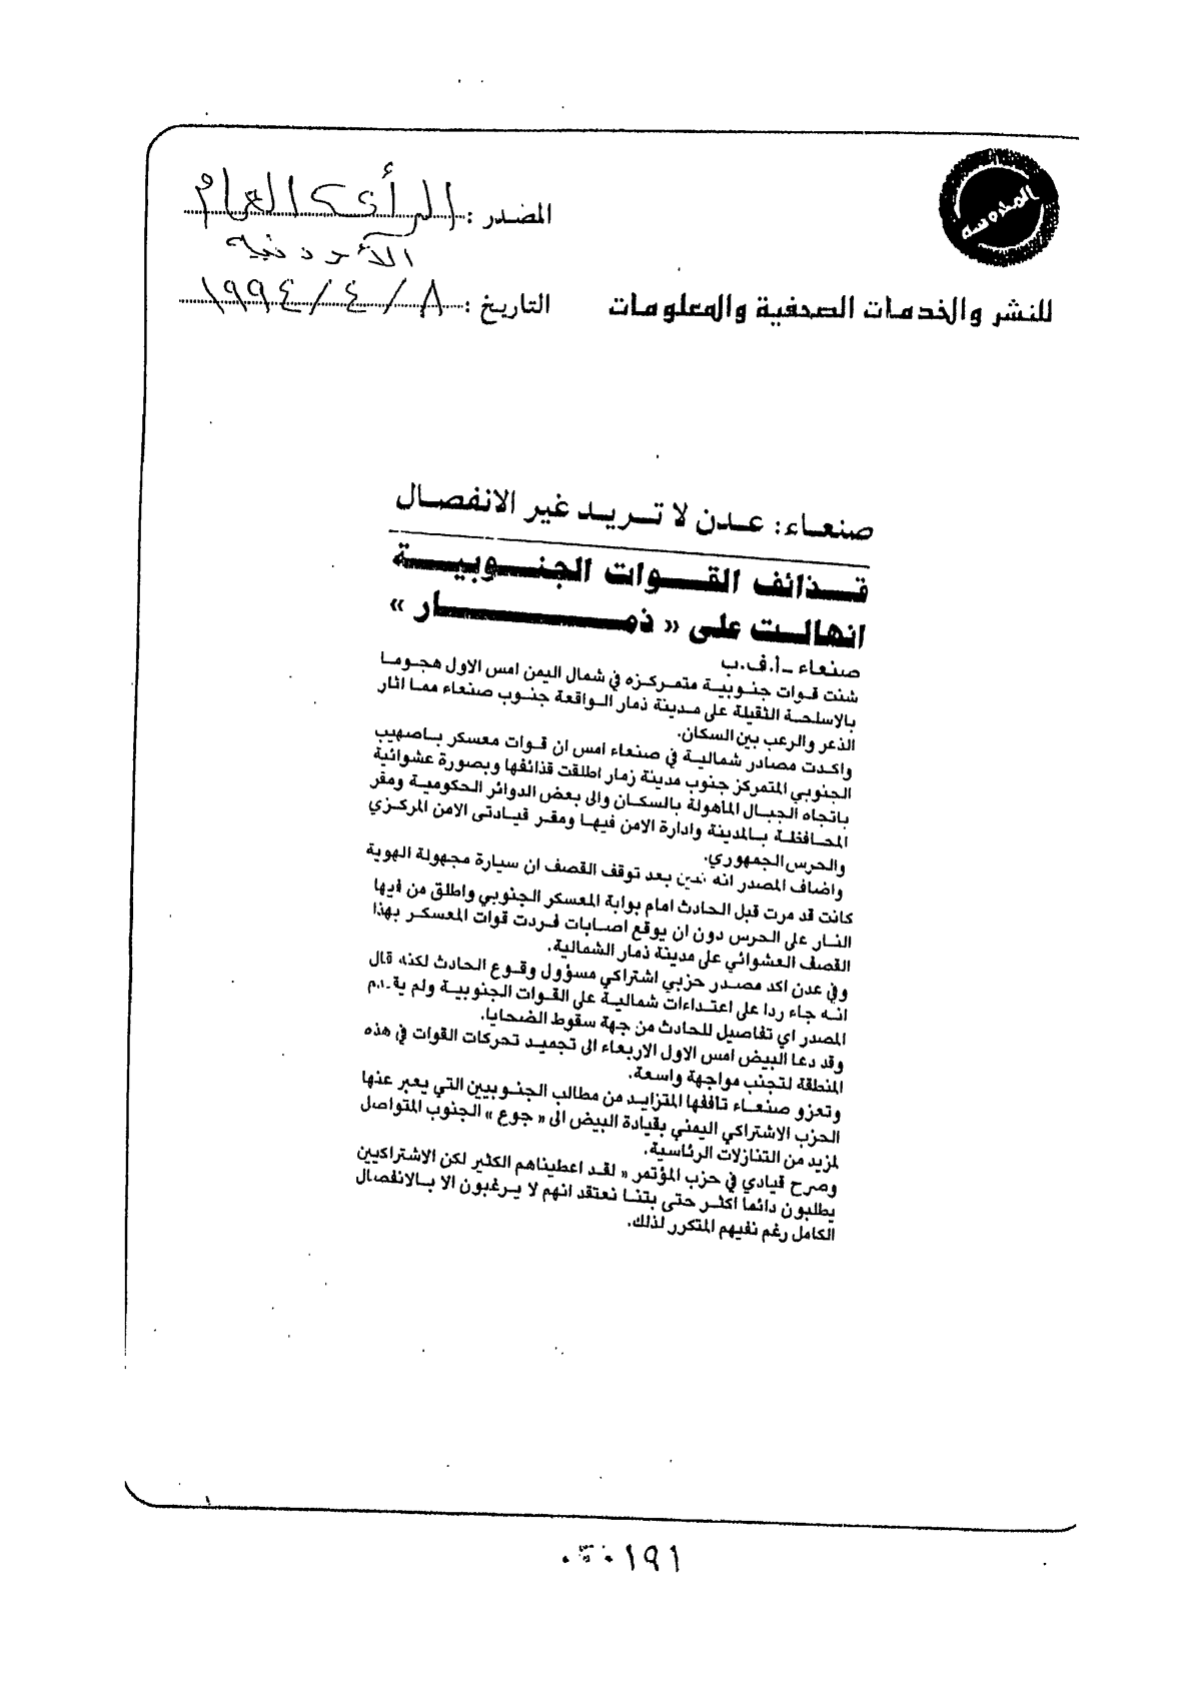 المدوسة
المصدر : الرأي العام
الأردنية
للنشر والخدمات الصحفية والمعلومات
التاريخ : ٨ / ٤ / ١٩٩٤
صنعاء: عدن لا تريد غير الانفصال
قذائف القوات الجنوبية
انهالت على « ذمار »
صنعاء ـ أ.ف.ب
شنت قوات جنوبية متمركزه في شمال اليمن امس الاول هجوما
بالاسلحة الثقيلة على مدينة ذمار الواقعة جنوب صنعاء مما اثار
الذعر والرعب بين السكان.
واكدت مصادر شمالية في صنعاء امس ان قوات معسكر باصهيب
الجنوبي المتمركز جنوب مدينة زمار اطلقت قذائفها وبصورة عشوائية
باتجاه الجبال الماهولة بالسكان والى بعض الدوائر الحكومية ومقر
المحافظة بالمدينة وادارة الامن فيها ومقر قيادتى الامن المركزي
والحرس الجمهوري.
واضاف المصدر انه تبين بعد توقف القصف ان سيارة مجهولة الهوية
كانت قد مرت قبل الحادث امام بوابة المعسكر الجنوبي واطلق من فيها
النار على الحرس دون ان يوقع اصابات فردت قوات المعسكر بهذا
القصف العشوائي على مدينة ذمار الشمالية.
وفي عدن اكد مصدر حزبي اشتراكي مسؤول وقوع الحادث لكنه قال
انه جاء ردا على اعتداءات شمالية على القوات الجنوبية ولم يقدم
المصدر اي تفاصيل للحادث من جهة سقوط الضحايا.
وقد دعا البيض امس الاول الاربعاء الى تجميد تحركات القوات في هذه
المنطقة لتجنب مواجهة واسعة.
وتعزو صنعاء تاففها المتزايد من مطالب الجنوبيين التي يعبر عنها
الحزب الاشتراكي اليمني بقيادة البيض الى « جوع » الجنوب المتواصل
لمزيد من التنازلات الرئاسية.
وصرح قيادي في حزب المؤتمر « لقد اعطيناهم الكثير لكن الاشتراكيين
يطلبون دائما اكثر حتى بتنا نعتقد انهم لا يرغبون الا بالانفصال
الكامل رغم نفيهم المتكرر لذلك.